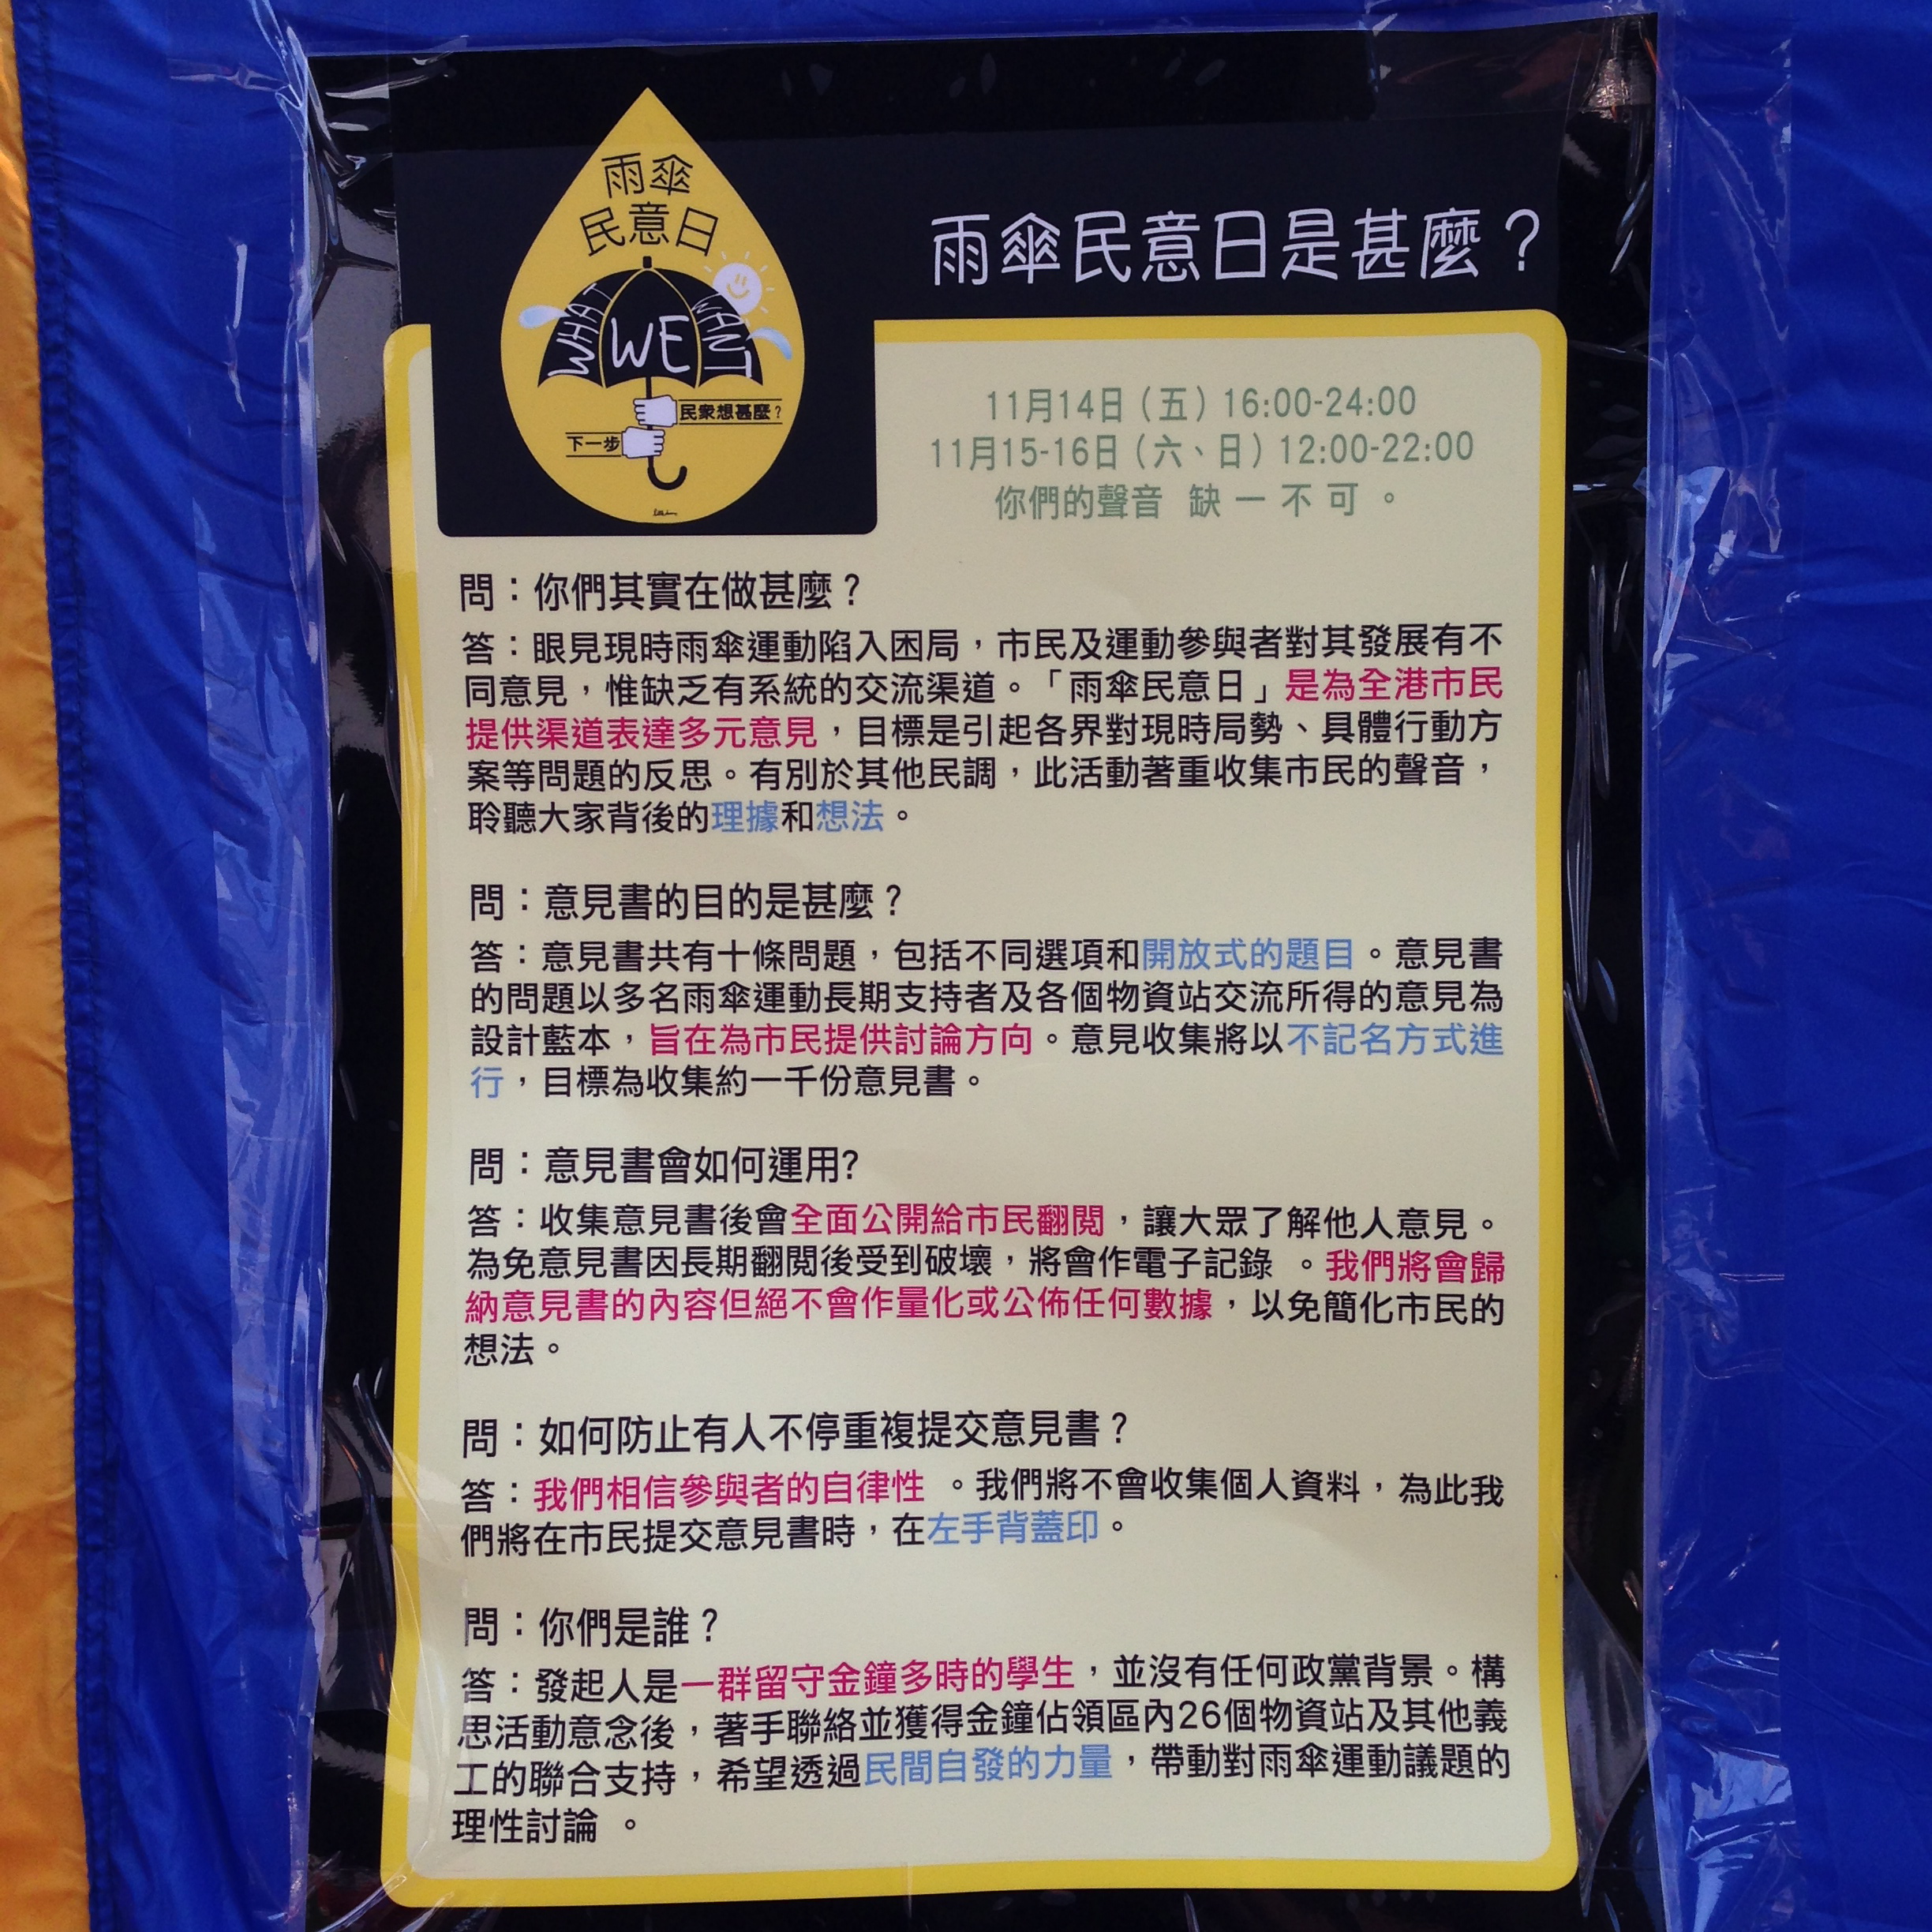 雨傘
民意日
WHAT WE WANT
民眾想甚麼？
下一步
雨傘民意日是甚麼？
11月14日（五）16:00-24:00
11月15-16日（六、日）12:00-22:00
你們的聲音 缺一不可。
問：你們其實在做甚麼？
答：眼見現時雨傘運動陷入困局，市民及運動參與者對其發展有不
同意見，惟缺乏有系統的交流渠道。「雨傘民意日」是為全港市民
提供渠道表達多元意見，目標是引起各界對現時局勢、具體行動方
案等問題的反思。有別於其他民調，此活動著重收集市民的聲音，
聆聽大家背後的理據和想法。
問：意見書的目的是甚麼？
答：意見書共有十條問題，包括不同選項和開放式的題目。意見書
的問題以多名雨傘運動長期支持者及各個物資站交流所得的意見為
設計藍本，旨在為市民提供討論方向。意見收集將以不記名方式進
行，目標為收集約一千份意見書。
問：意見書會如何運用?
答：收集意見書後會全面公開給市民翻閱，讓大眾了解他人意見。
為免意見書因長期翻閱後受到破壞，將會作電子記錄 。我們將會歸
納意見書的內容但絕不會作量化或公佈任何數據，以免簡化市民的
想法。
問：如何防止有人不停重複提交意見書？
答：我們相信參與者的自律性 。我們將不會收集個人資料，為此我
們將在市民提交意見書時，在左手背蓋印。
問：你們是誰？
答：發起人是一群留守金鐘多時的學生，並沒有任何政黨背景。構
思活動意念後，著手聯絡並獲得金鐘佔領區內26個物資站及其他義
工的聯合支持，希望透過民間自發的力量，帶動對雨傘運動議題的
理性討論 。